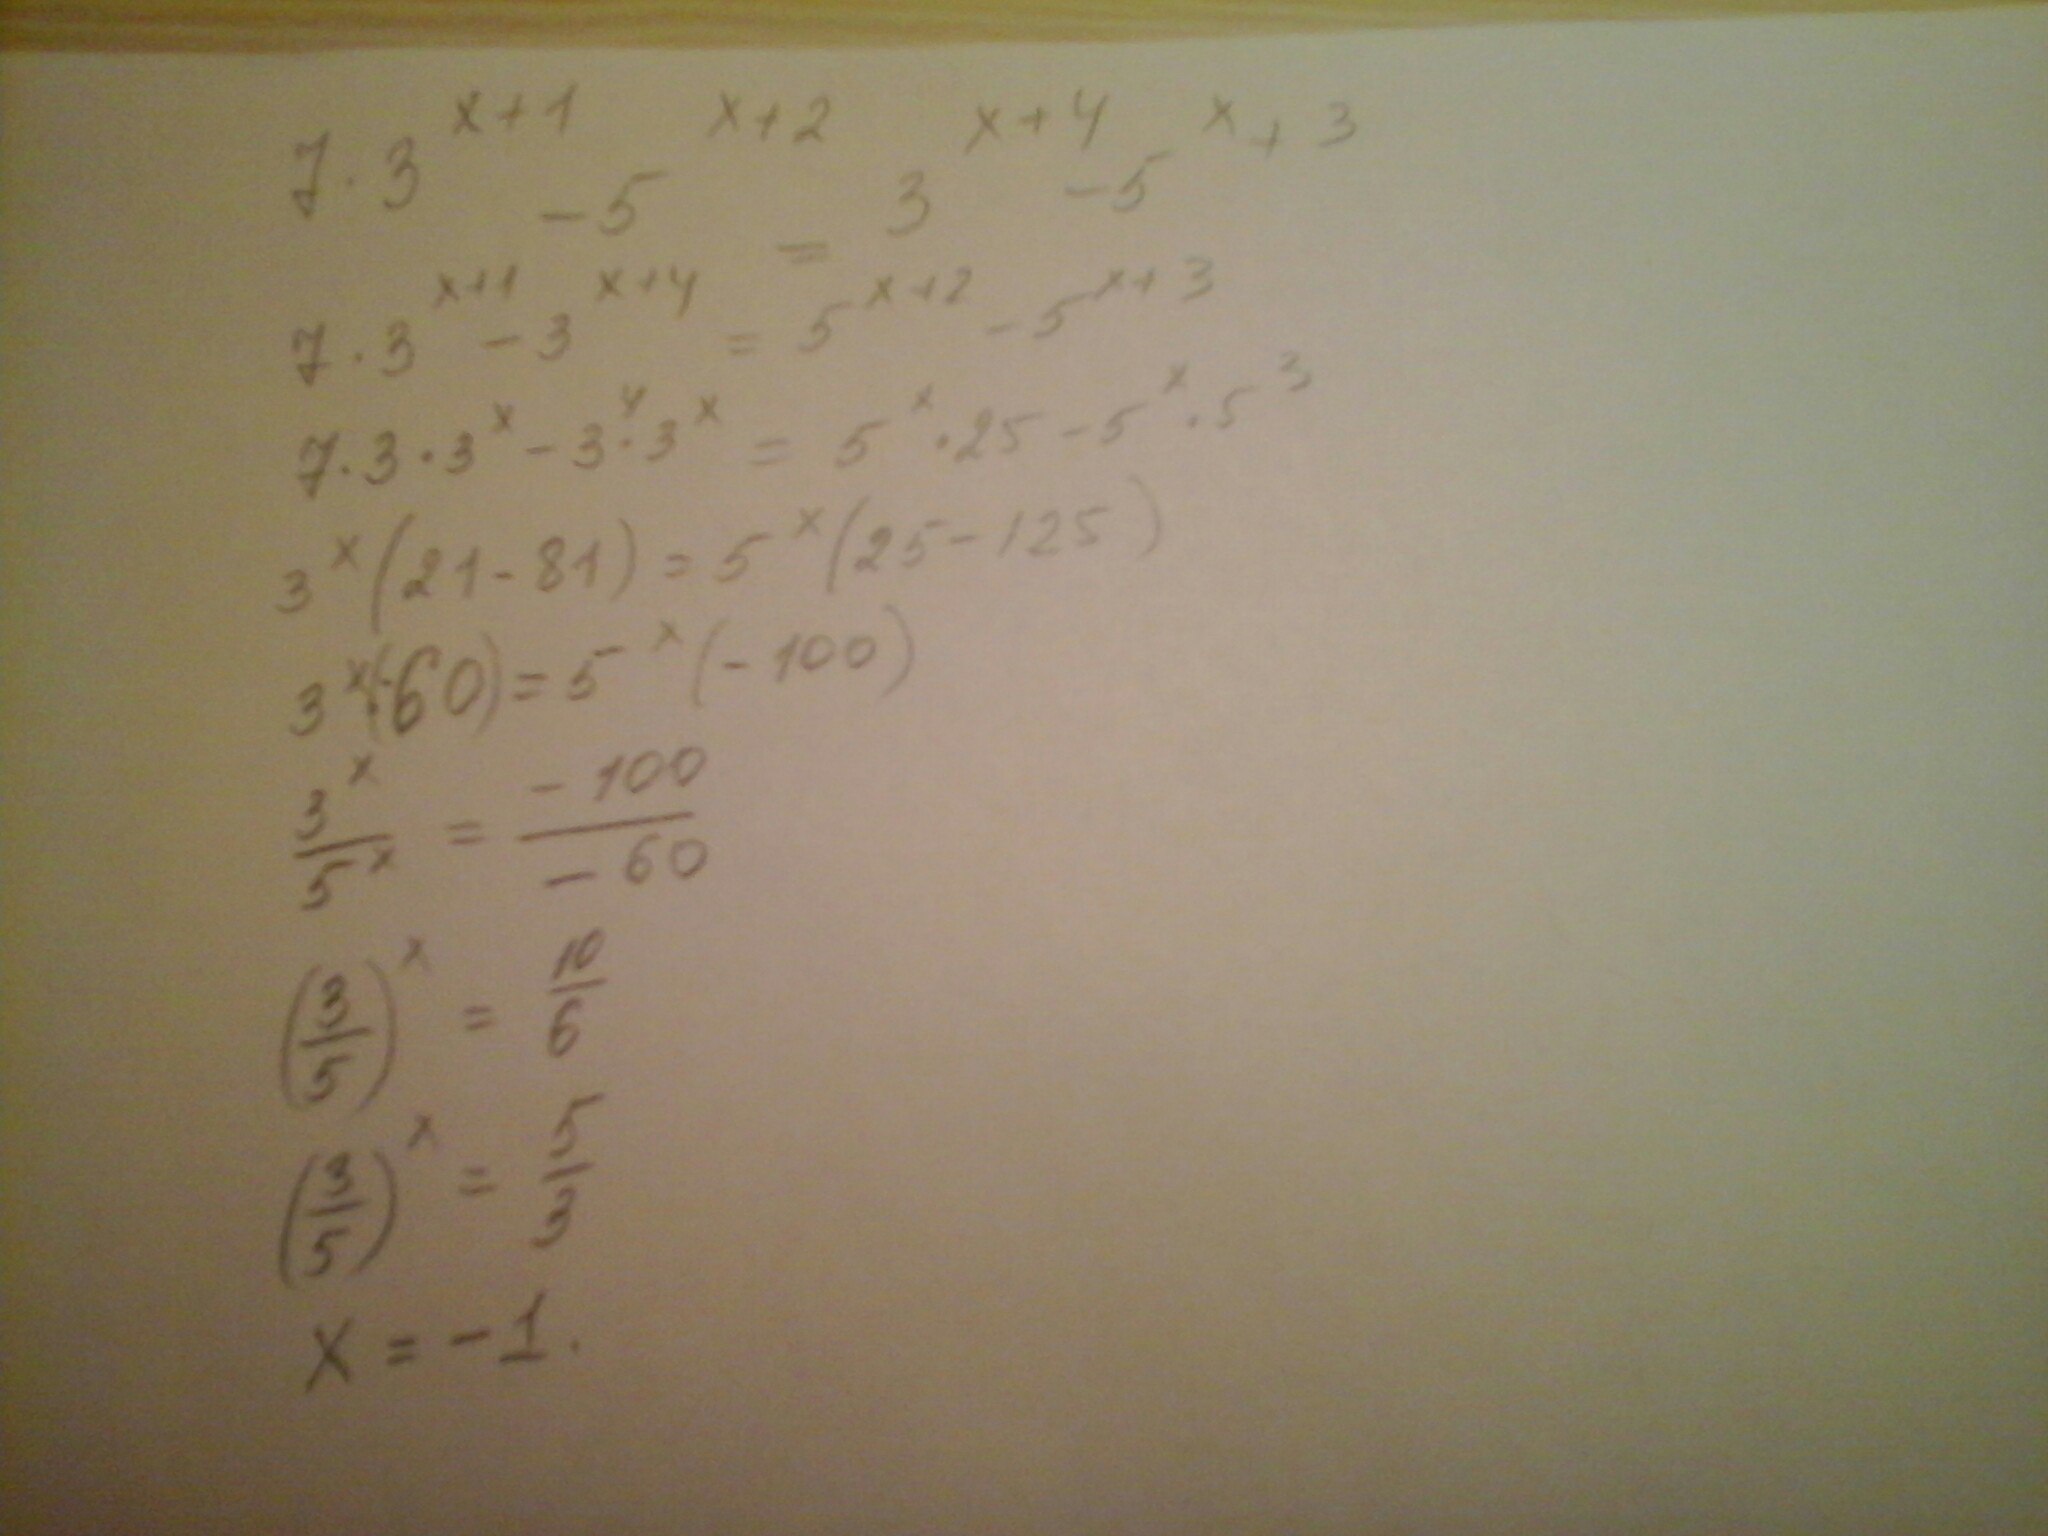 7·3^(x+1) - 5^(x+2) = 3^(x+4) - 5^(x+3)
7·3^(x+1) - 3^(x+4) = 5^(x+2) - 5^(x+3)
7·3·3^x - 3^4·3^x = 5^x·25 - 5^x·5^3
3^x(21-81) = 5^x(25-125)
3^x(-60) = 5^x(-100)
3^x/5^x = -100/-60
(3/5)^x = 10/6
(3/5)^x = 5/3
x = -1.